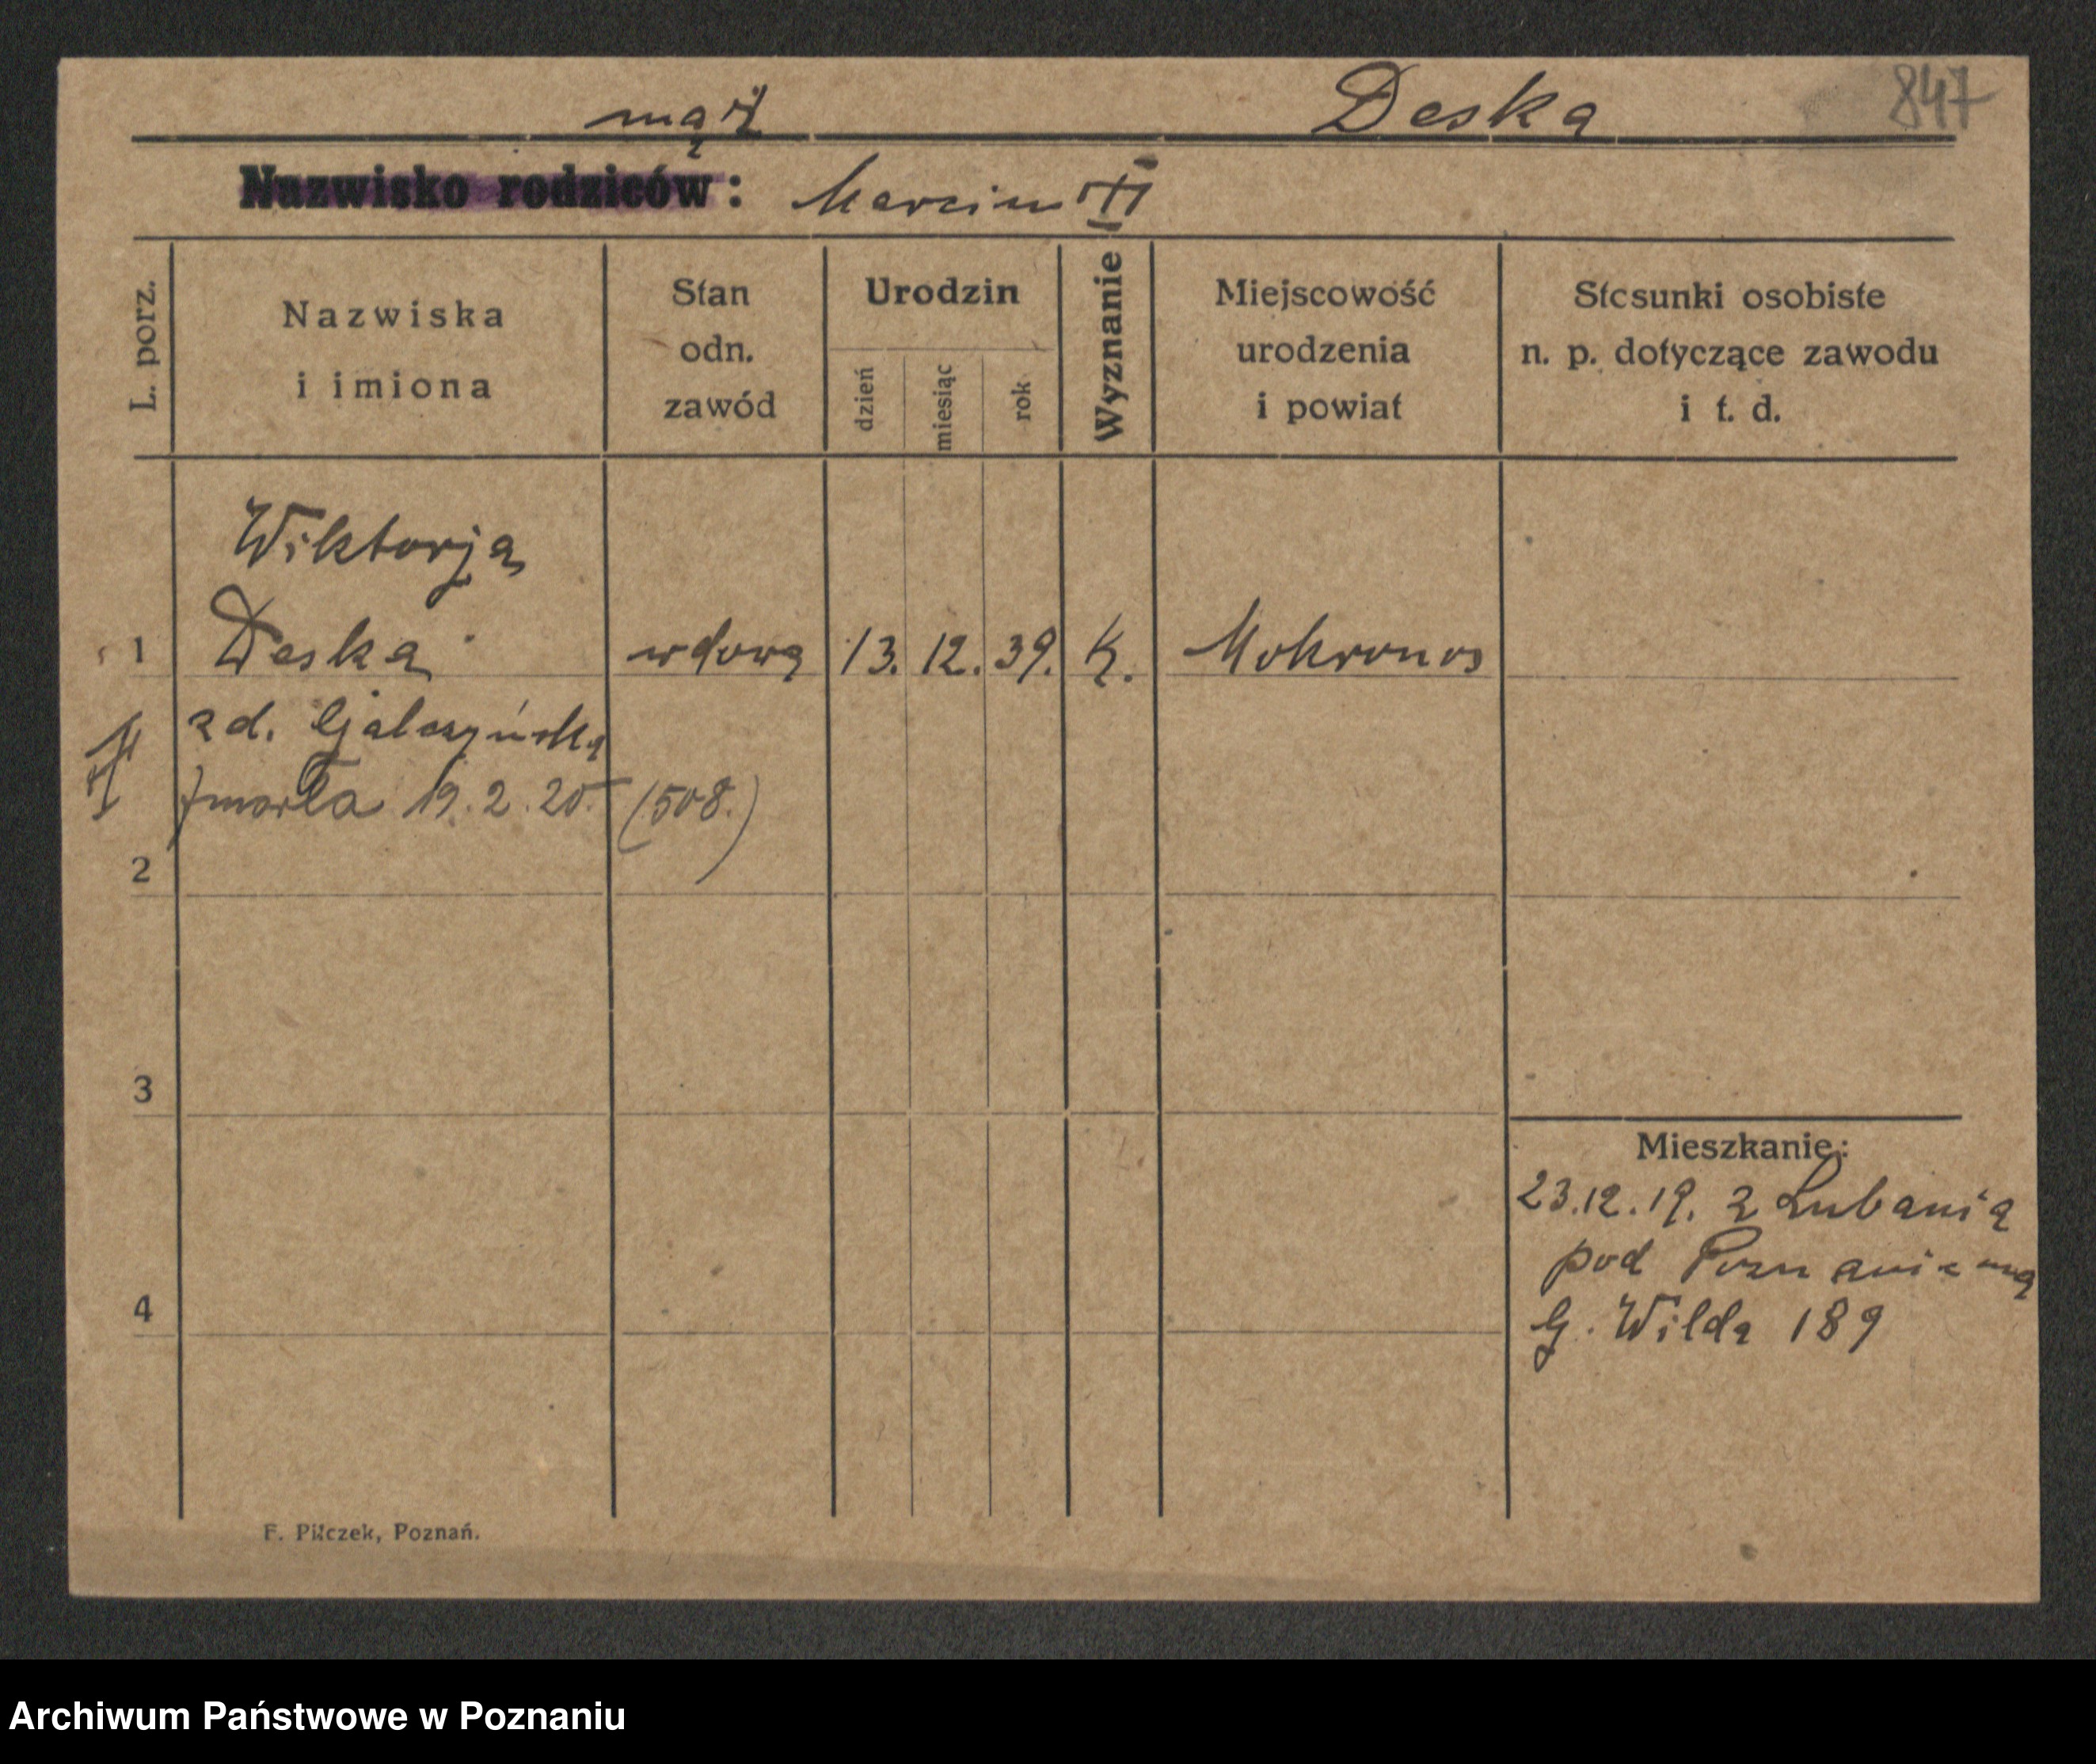 mąż Deska 847
Nazwisko rodziców: Marcin
L. porz.
Nazwiska
i imiona
Stan
odn.
zawód
Urodzin
dzień
miesiąc
rok
Wyznanie
Miejscowość
urodzenia
i powiat
Stosunki osobiste
n. p. dotyczące zawodu
i t. d.
Wiktorja
1 Deska wdowa 13. 12. 39. K. Mokronos
zd.
zmarła 19.2.20. (508.)
2
3
4
Mieszkanie:
23.12.19. z Lubania
pod Poznaniem
G. Wilda 189
F. Pilczek, Poznań.
Archiwum Państwowe w Poznaniu